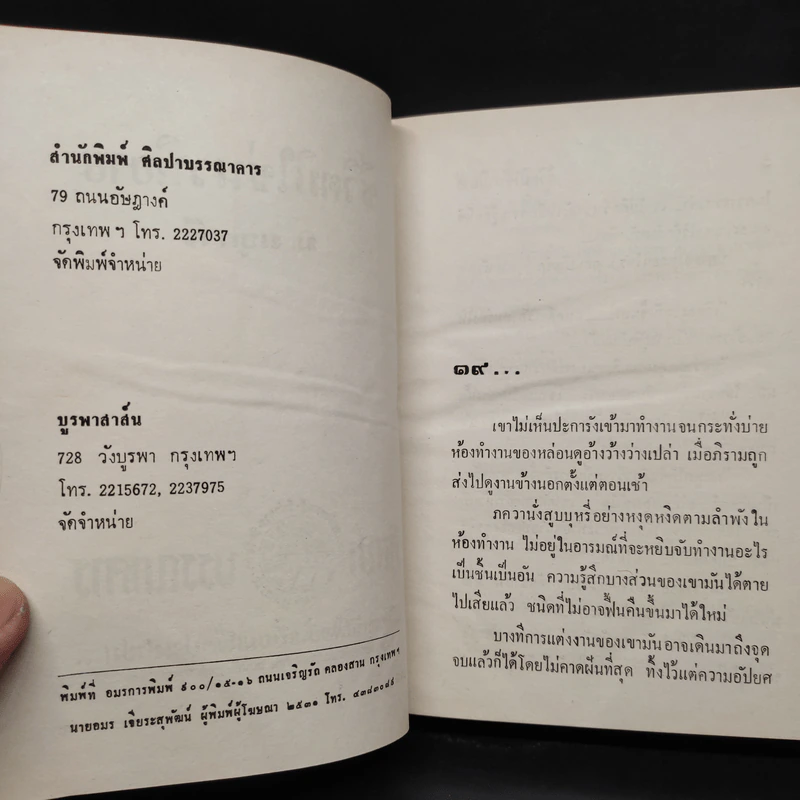 สำนักพิมพ์ ศิลปาบรรณาคาร
79 ถนนอัษฎางค์
กรุงเทพ ฯ โทร. 2227037
จัดพิมพ์จำหน่าย
บูรพาสาส์น
728 วังบูรพา กรุงเทพฯ
โทร. 2215672, 2237975
จัดจำหน่าย
พิมพ์ที่ อมรการพิมพ์ ๙๐๐/๑๕-๑๖ ถนนเจริญรัถ คลองสาน กรุงเทพฯ
นายอมร เจียระสุพัฒน์ ผู้พิมพ์ผู้โฆษณา ๒๕๓๑ โทร. ๔๓๗๓๐๘๙
๑๙...
เขาไม่เห็นปะการังเข้ามาทำงานจนกระทั่งบ่าย
ห้องทำงานของหล่อนดูอ้างว้างว่างเปล่า เมื่อภิรามถูก
ส่งไปดูงานข้างนอกตั้งแต่ตอนเช้า
ภควานั่งสูบบุหรี่อย่างหงุดหงิดตามลำพังใน
ห้องทำงาน ไม่อยู่ในอารมณ์ที่จะหยิบจับทำงานอะไร
เป็นชิ้นเป็นอัน ความรู้สึกบางส่วนของเขามันได้ตาย
ไปเสียแล้ว ชนิดที่ไม่อาจฟื้นคืนขึ้นมาได้ใหม่
บางทีการแต่งงานของเขามันอาจเดินมาถึงจุด
จบแล้วก็ได้โดยไม่คาดฝันที่สุด ทิ้งไว้แต่ความอัปยศ